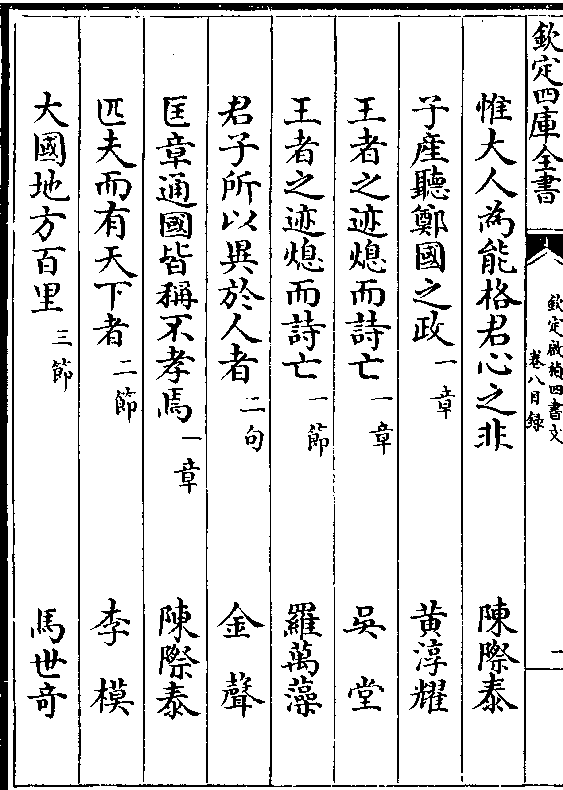 欽定四庫全書
欽定啟禎四書文
卷八目録
一
惟大人為能格君心之非 陳際泰
子產聽鄭國之政 一章 黄淳耀
王者之迹熄而詩亡 一章 吳堂
王者之迹熄而詩亡 一節 羅萬藻
君子所以異於人者 二句 金聲
匡章通國皆稱不孝焉 一章 陳際泰
匹夫而有天下者 二節 李模
大國地方百里 三節 馬世奇